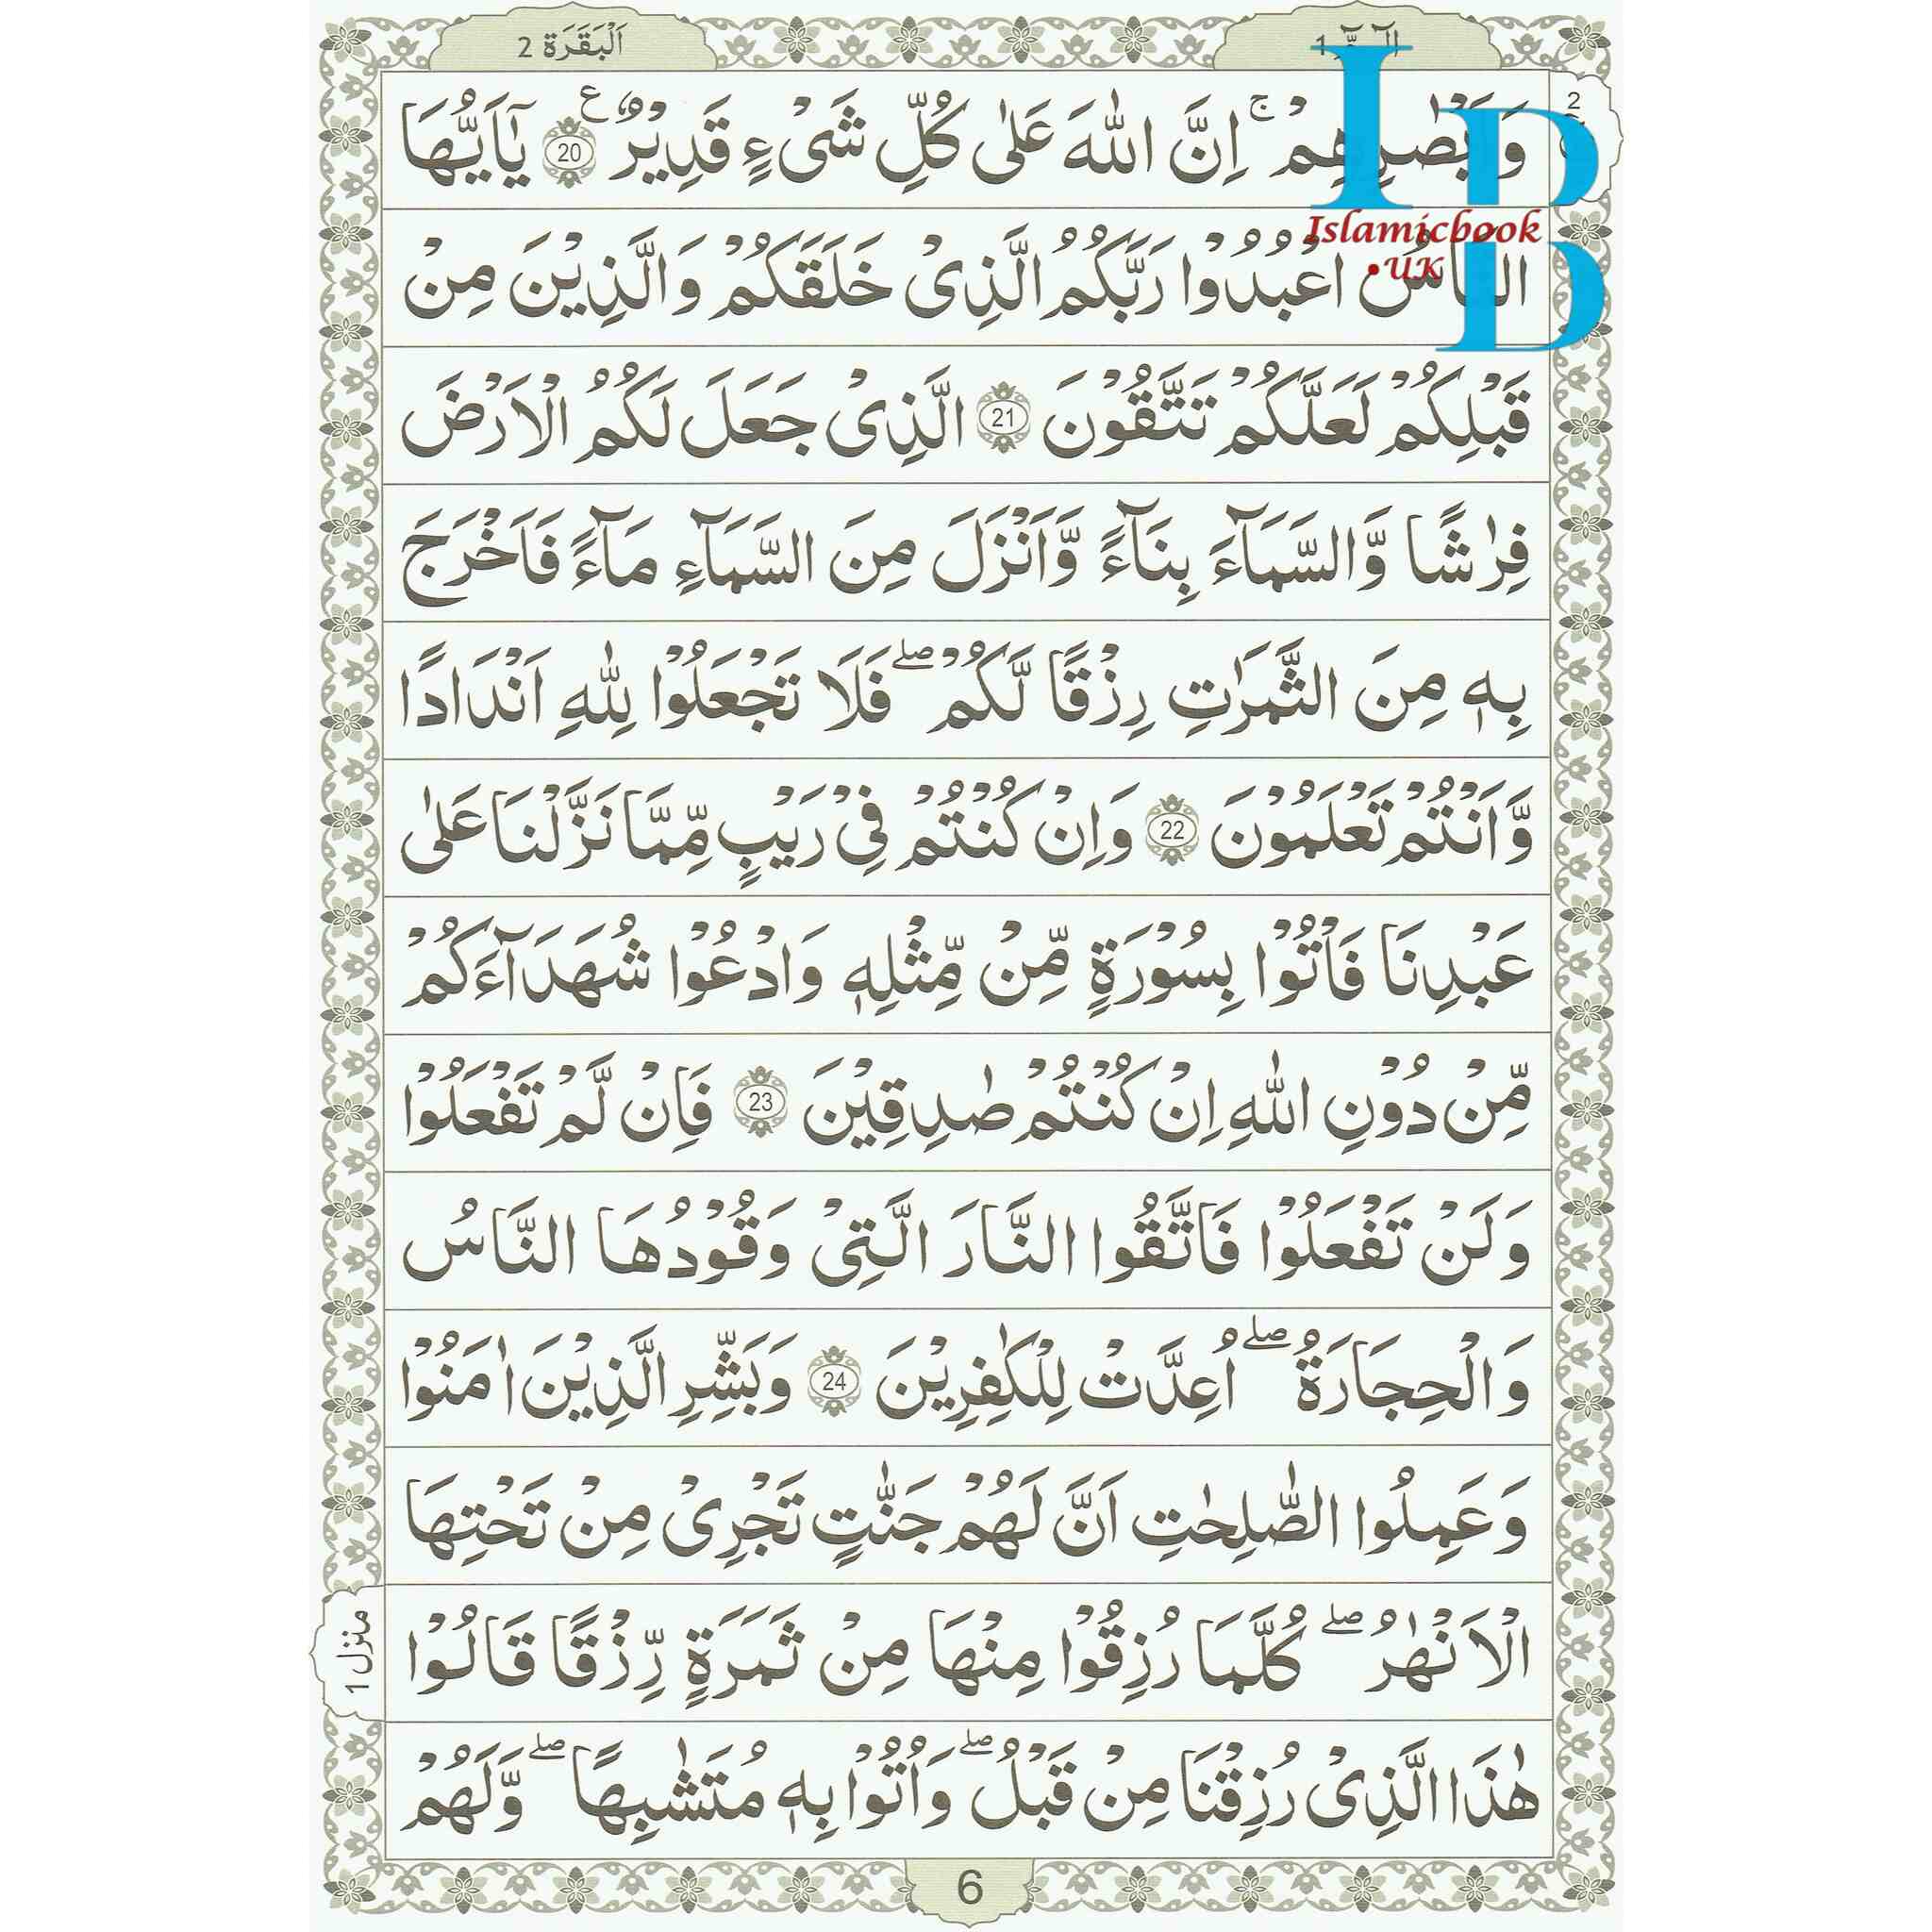 الٓمّٓ 1
اَلْبَقَرَة 2
2
وَاَبْصَارِهِمْ ۚ اِنَّ اللّٰهَ عَلٰى كُلِّ شَىْءٍ قَدِيْرٌ ۧ 20 يٰٓاَيُّهَا
النَّاسُ اعْبُدُوْا رَبَّكُمُ الَّذِىْ خَلَقَكُمْ وَالَّذِيْنَ مِنْ
قَبْلِكُمْ لَعَلَّكُمْ تَتَّقُوْنَ 21 الَّذِىْ جَعَلَ لَكُمُ الْاَرْضَ
فِرٰشًا وَّالسَّمَآءَ بِنَآءً وَّاَنْزَلَ مِنَ السَّمَآءِ مَآءً فَاَخْرَجَ
بِهٖ مِنَ الثَّمَرٰتِ رِزْقًا لَّكُمْ ۖ فَلَا تَجْعَلُوْا لِلّٰهِ اَنْدَادًا
وَّاَنْتُمْ تَعْلَمُوْنَ 22 وَاِنْ كُنْتُمْ فِىْ رَيْبٍ مِّمَّا نَزَّلْنَا عَلٰى
عَبْدِنَا فَاْتُوْا بِسُوْرَةٍ مِّنْ مِّثْلِهٖ وَادْعُوْا شُهَدَآءَكُمْ
مِّنْ دُوْنِ اللّٰهِ اِنْ كُنْتُمْ صٰدِقِيْنَ 23 فَاِنْ لَّمْ تَفْعَلُوْا
وَلَنْ تَفْعَلُوْا فَاتَّقُوا النَّارَ الَّتِىْ وَقُوْدُهَا النَّاسُ
وَالْحِجَارَةُ ۖ اُعِدَّتْ لِلْكٰفِرِيْنَ 24 وَبَشِّرِ الَّذِيْنَ اٰمَنُوْا
وَعَمِلُوا الصّٰلِحٰتِ اَنَّ لَهُمْ جَنّٰتٍ تَجْرِىْ مِنْ تَحْتِهَا
الْاَنْهٰرُ ۖ كُلَّمَا رُزِقُوْا مِنْهَا مِنْ ثَمَرَةٍ رِّزْقًا قَالُوْا
هٰذَا الَّذِىْ رُزِقْنَا مِنْ قَبْلُ ۖ وَاُتُوْا بِهٖ مُتَشٰبِهًا ۖ وَّلَهُمْ
منزل 1
6
IBB
Islamicbook
.UK